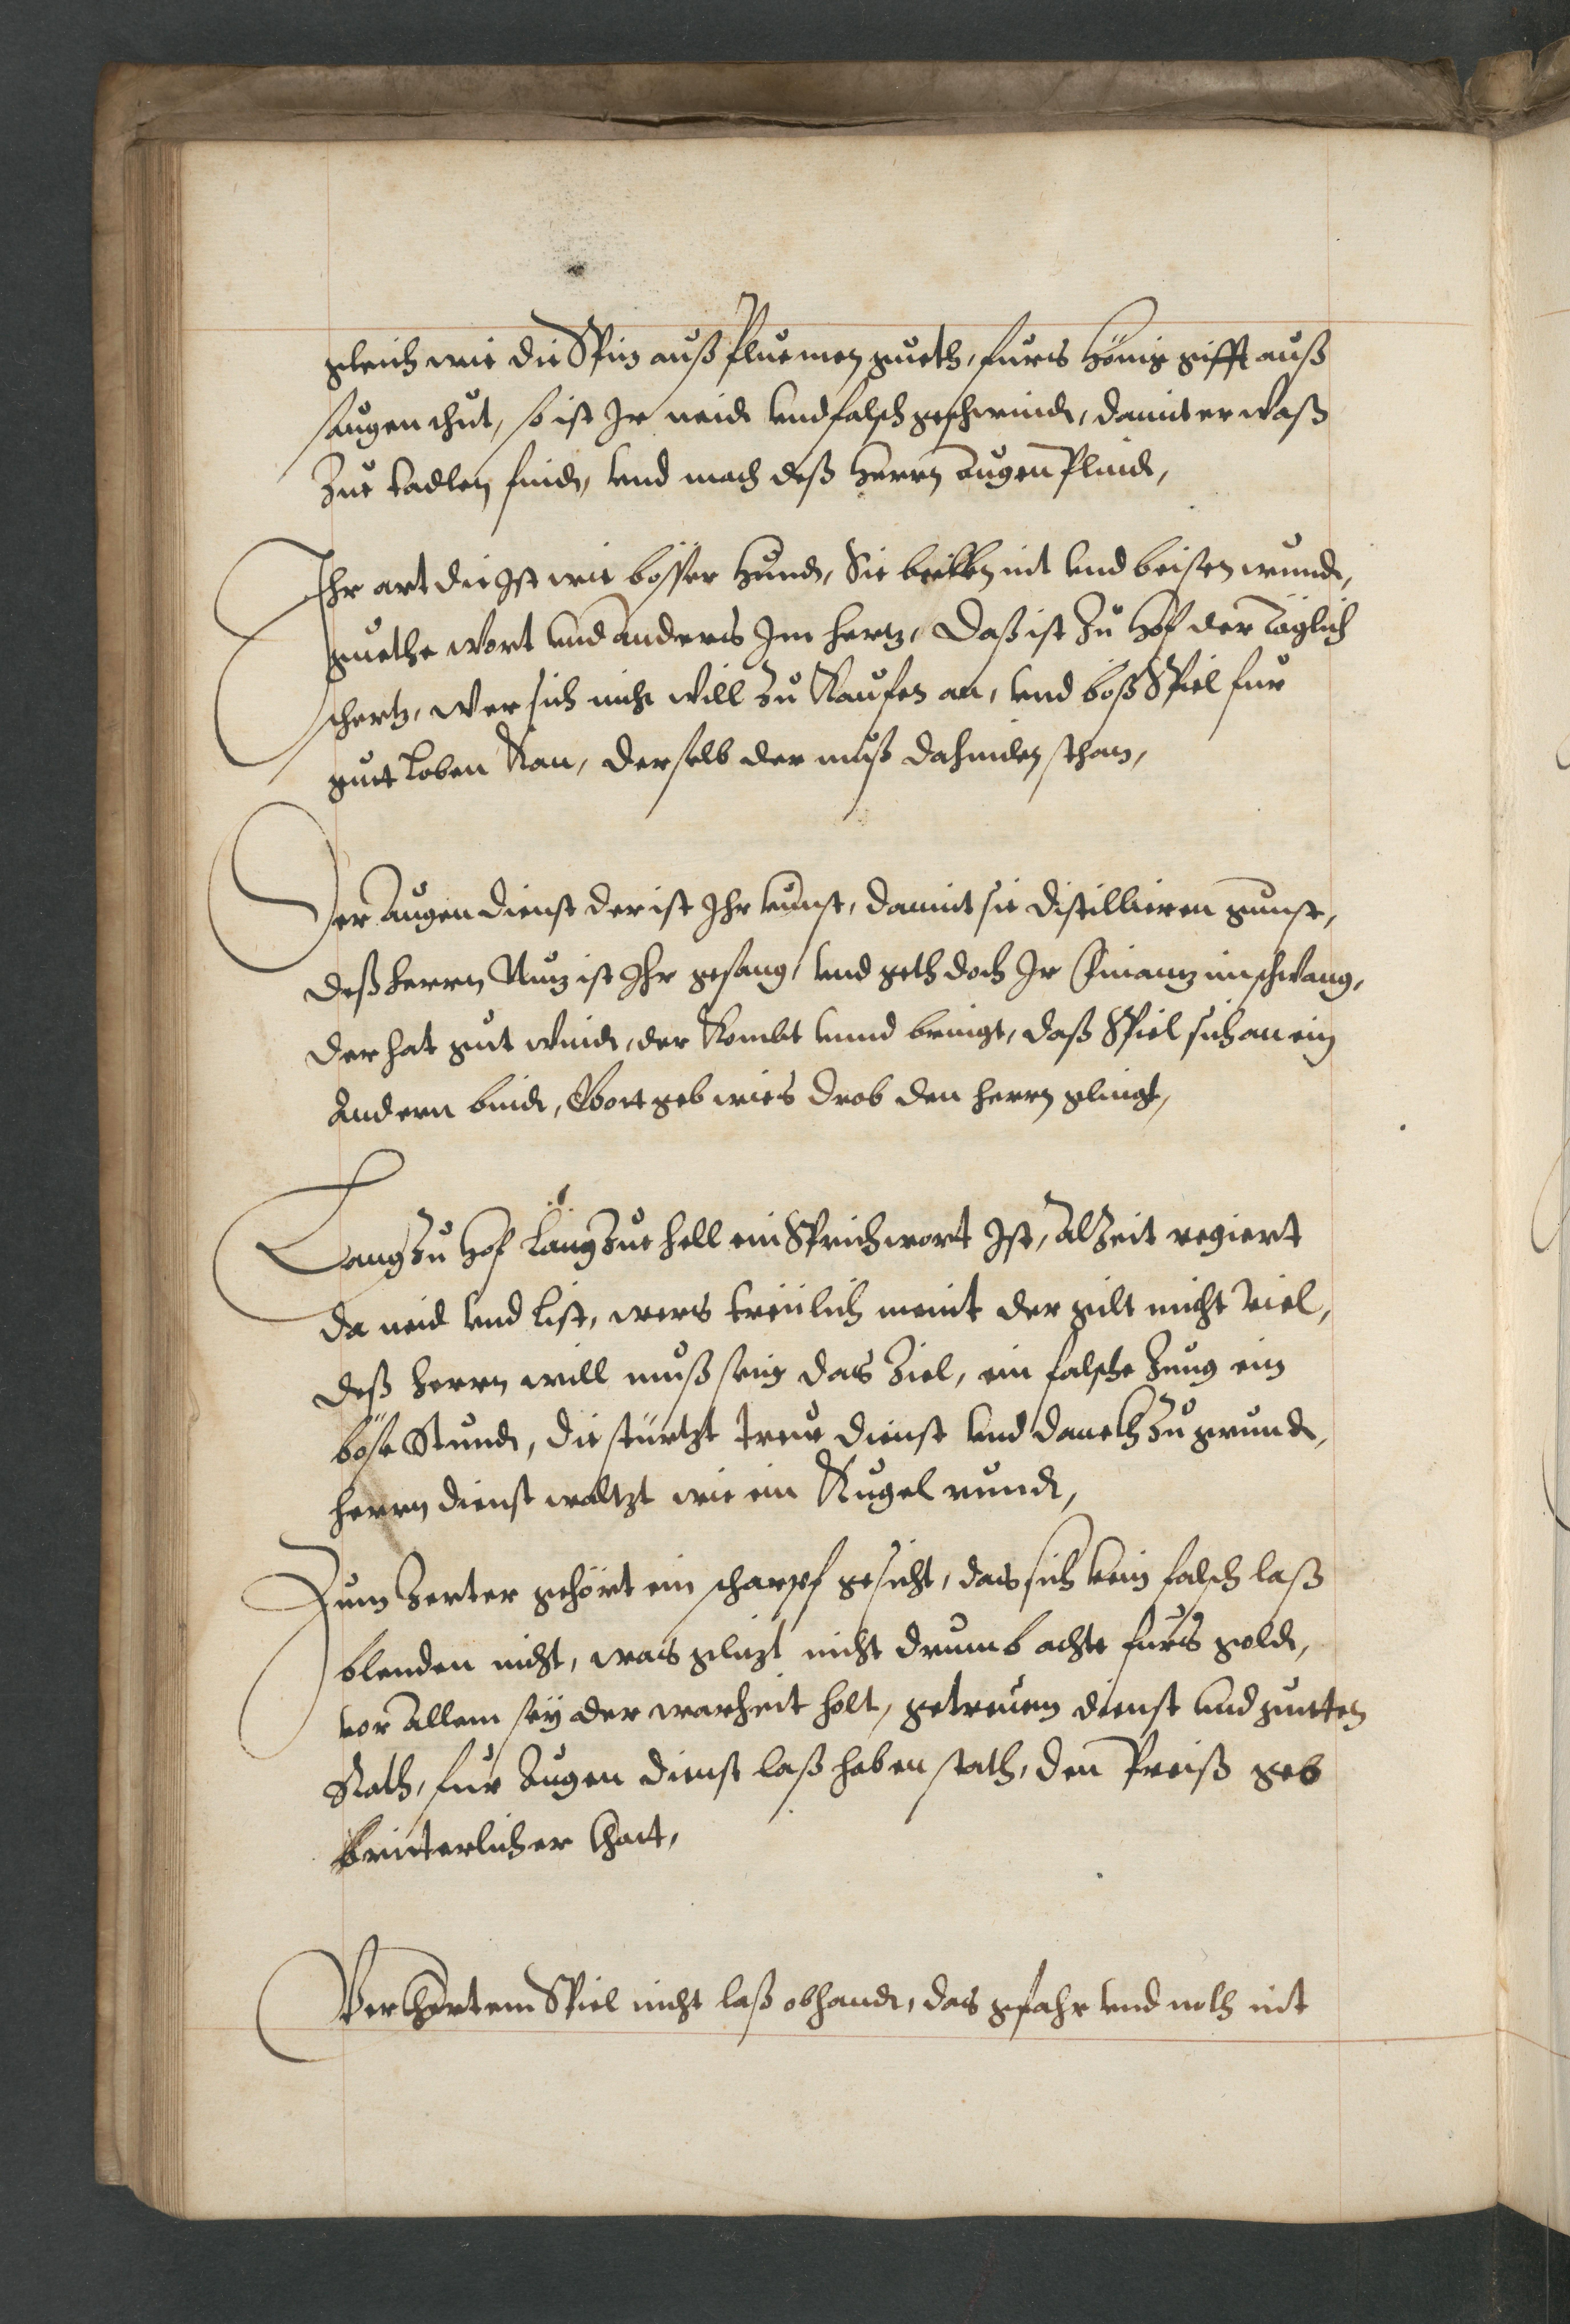 gleich wie die Spin auß Pluemen gueth, furs Hönig gifft auß
saugen thut, so ist Ir neidt vnd falsch geschwindt, damit er waß
Zue tadlen findt, vnd mach deß Herrn augen Plindt,
Ihr art die Ist wie bösser Hundt, Sie beillen nit vnd beisen wundt,
guethe wort vnd anders Im hertz, Daß ist Zu Hof der Täglich
schertz, wer sich nicht will Zu Kaufen an, vnd boß Spiel fur
guet loben Kan, derselb der muß dahinden sthan,
Der Augendienst der ist Ihr kunst, damit sie distillieren gunst,
deß herrn Nuz ist Ihr gesang, vnd geth doch Ir Finantz im schwang,
der hat gut windt, der Kombt vnnd bringt, daß Spiel sich an ein
Andern bindt, Gott geb wies drob den herrn glingt,
Lang Zu Hof Lang Zue hell ein Sprichwort Ist, alZeit regiert
da neid vnd list, wers treülich meint der gilt nicht viel,
deß herrn will muß sein das Ziel, ein falsche Zung ein
böse Stundt, die stürtzt treue dienst vnd danckh Zu grundt,
herrn dienst waltzt wie ein Kugel rundt,
Zum Zepter gehört ein scharpf gesicht, das sich kein falsch laß
blenden nicht, was glizt nicht drumb achte furs goldt,
vor allem sey der warheit holt, getreuem dienst vnd gutten
Rath, fur Augen dienst laß haben stath, den Preiß geb
Ritterlicher That,
Verkhertem Spiel nicht laß obhandt, das gfahr vnd noth nit